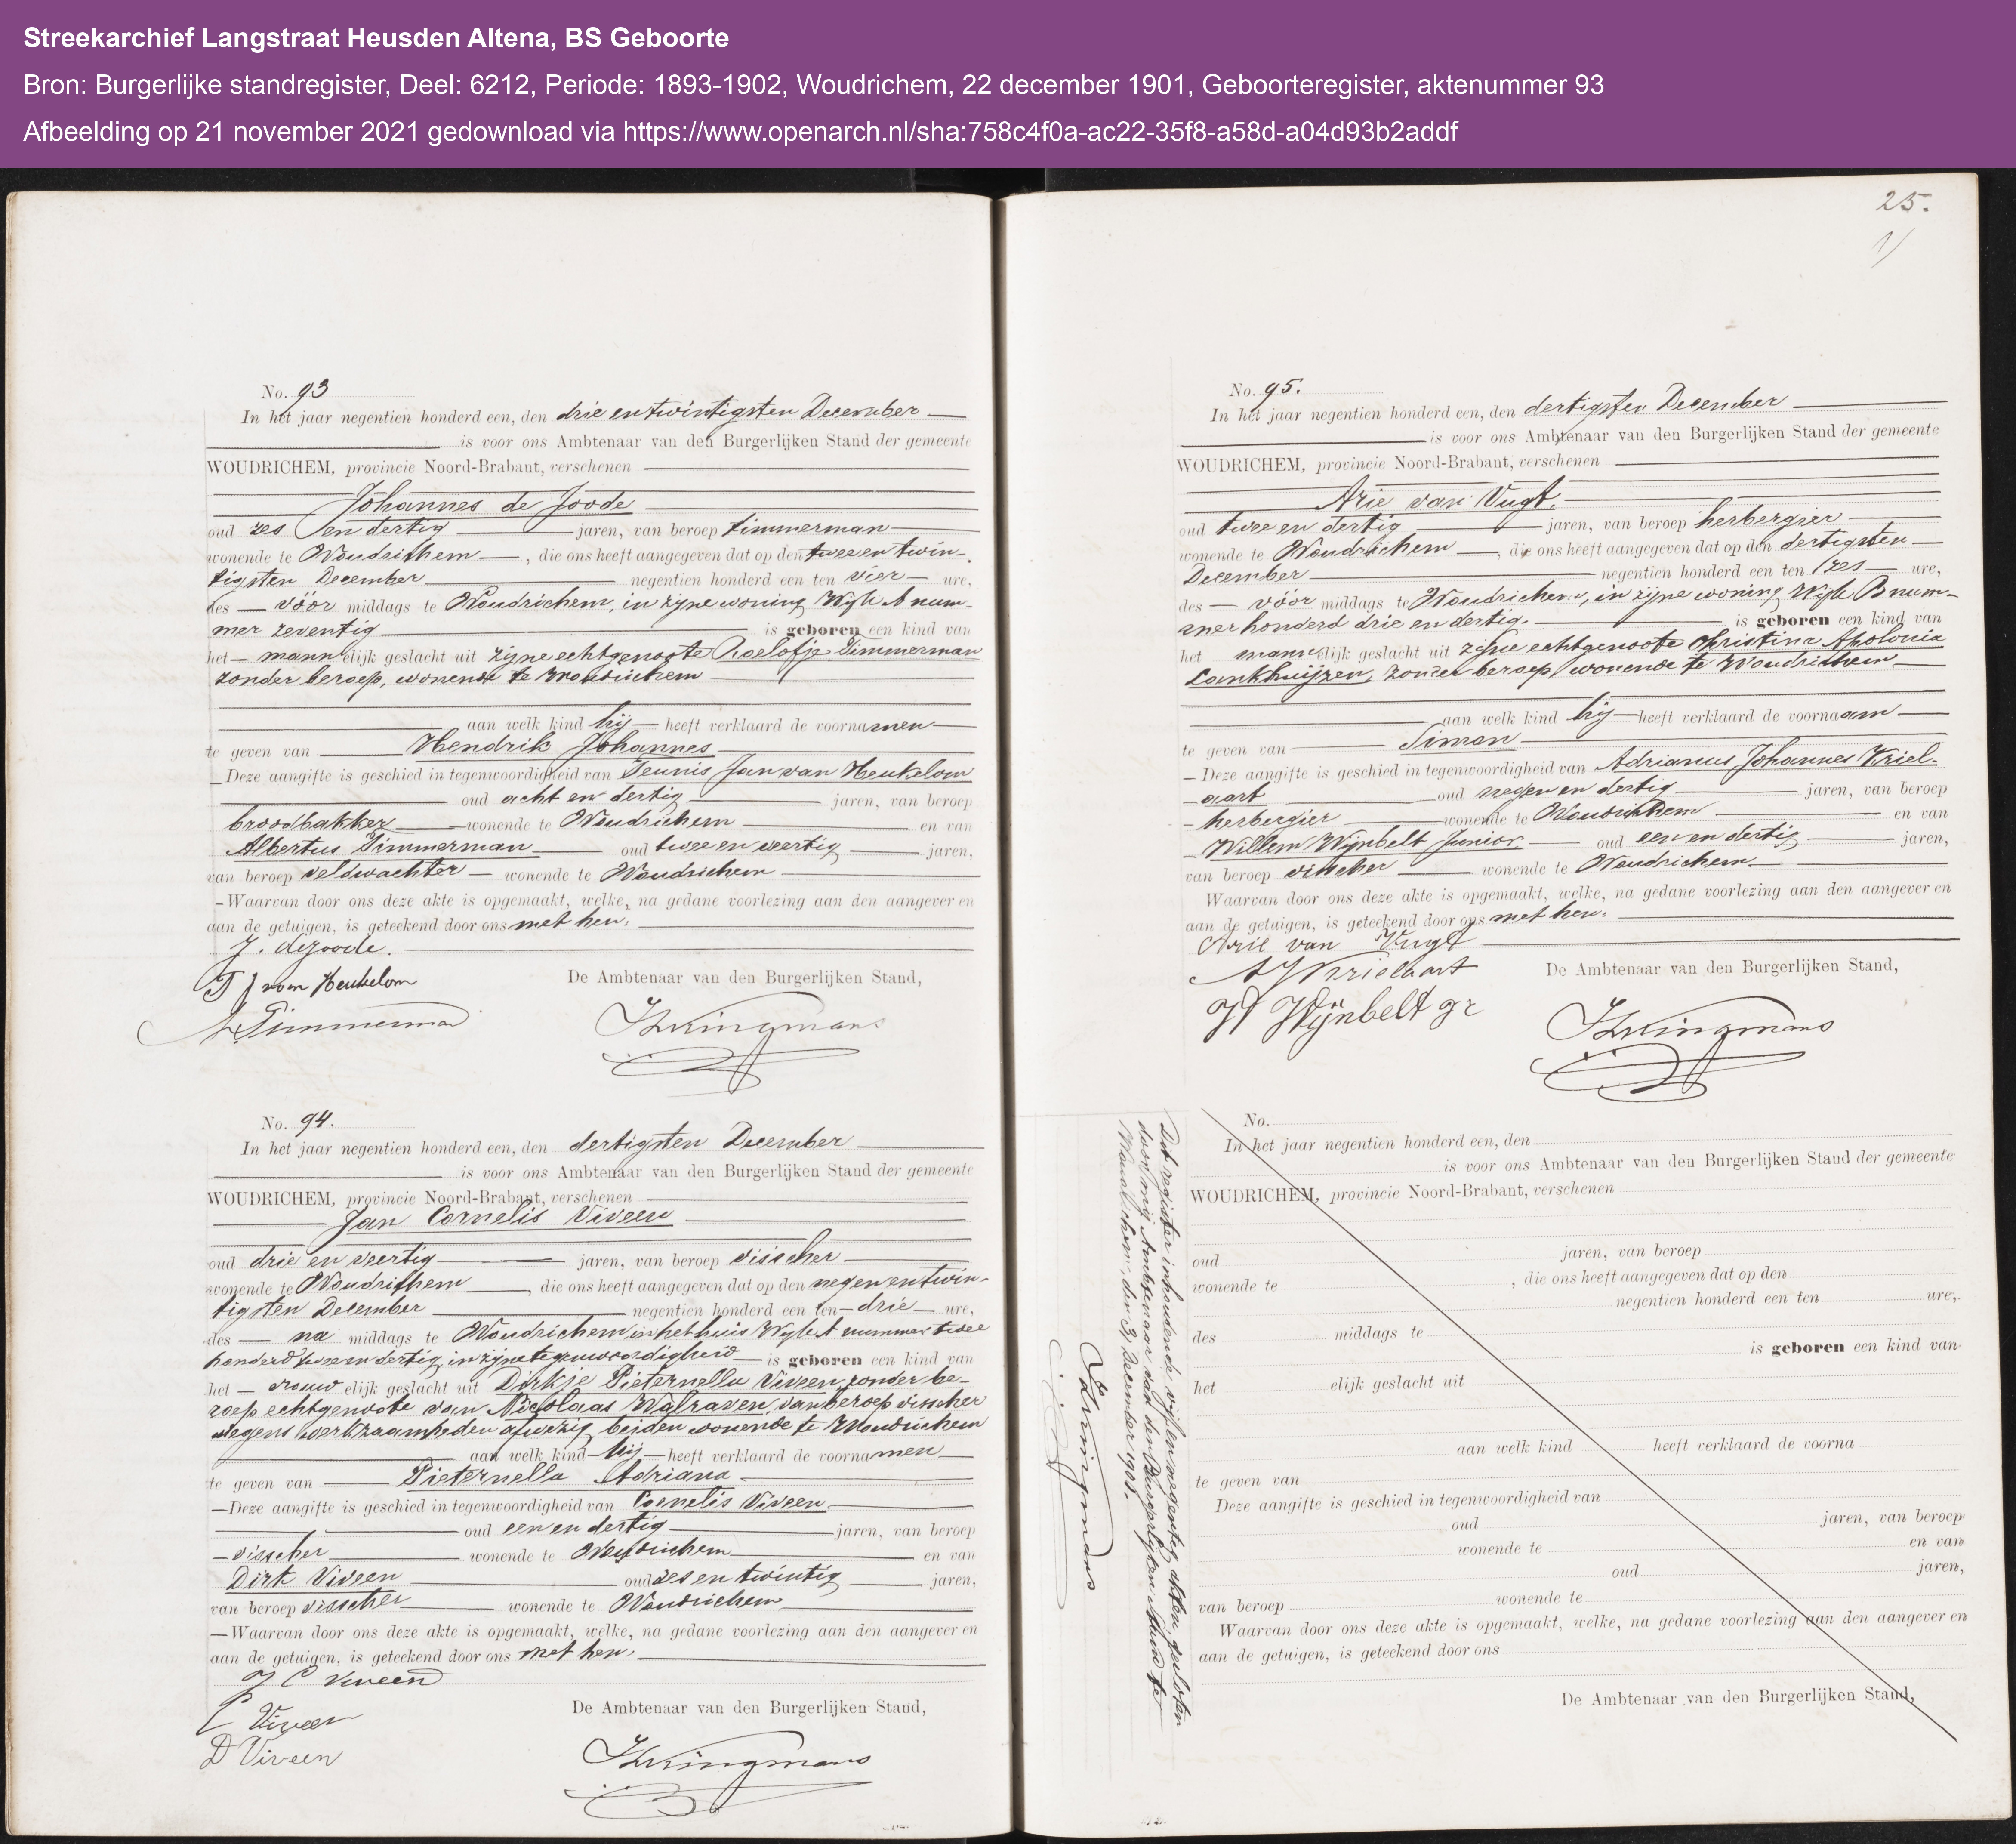 Streekarchief Langstraat Heusden Altena, BS Geboorte
Bron: Burgerlijke standregister, Deel: 6212, Periode: 1893-1902, Woudrichem, 22 december 1901, Geboorteregister, aktenummer 93
Afbeelding op 21 november 2021 gedownload via https://www.openarch.nl/sha:758c4f0a-ac22-35f8-a58d-a04d93b2addf
No. 93
In het jaar negentien honderd een, den drie en twintigsten December
is voor ons Ambtenaar van den Burgerlijken Stand der gemeente
WOUDRICHEM, provincie Noord-Brabant, verschenen
Johannes de Joode
oud zes en dertig jaren, van beroep timmerman
wonende te Woudrichem, die ons heeft aangegeven dat op den twee en twin-
tigsten December negentien honderd een ten vier ure,
des vóór middags te Woudrichem, in zijne woning Wijk A num-
mer zeventig is geboren een kind van
het mannelijk geslacht uit zijne echtgenoote Roelofje Timmerman
zonder beroep, wonende te Woudrichem
aan welk kind hij heeft verklaard de voornamen
te geven van Hendrik Johannes
Deze aangifte is geschied in tegenwoordigheid van Teunis Jan van Heukelom
oud acht en dertig jaren, van beroep
broodbakker wonende te Woudrichem en van
Albertus Timmerman oud twee en veertig jaren,
van beroep veldwachter wonende te Woudrichem
Waarvan door ons deze akte is opgemaakt, welke, na gedane voorlezing aan den aangever en
aan de getuigen, is geteekend door ons met hen.
J. de Joode.
T J van Heukelom
De Ambtenaar van den Burgerlijken Stand,
A Timmerman
Kingmans
No. 94.
In het jaar negentien honderd een, den dertigsten December
is voor ons Ambtenaar van den Burgerlijken Stand der gemeente
WOUDRICHEM, provincie Noord-Brabant, verschenen
Jan Cornelis Viveen
oud drie en veertig jaren, van beroep visscher
wonende te Woudrichem, die ons heeft aangegeven dat op den negen en twin-
tigsten December negentien honderd een ten drie ure,
des na middags te Woudrichem in het huis Wijk A nummer twee
honderd twee en dertig, in zijne tegenwoordigheid is geboren een kind van
het vrouwelijk geslacht uit Dirkje Pieternella Viveen, zonder be-
roep echtgenoote van Nicolaas Walraven, van beroep visscher
wegens werkzaamheden afwezig, beiden wonende te Woudrichem
aan welk kind hij heeft verklaard de voornamen
te geven van Pieternella Adriana
Deze aangifte is geschied in tegenwoordigheid van Cornelis Viveen,
oud een en dertig jaren, van beroep
visscher wonende te Woudrichem en van
Dirk Viveen oud zes en twintig jaren,
van beroep visscher wonende te Woudrichem
Waarvan door ons deze akte is opgemaakt, welke, na gedane voorlezing aan den aangever en
aan de getuigen, is geteekend door ons met hen.
J C Viveen
C Viveen
De Ambtenaar van den Burgerlijken Stand,
D Viveen
Kingmans
25.
No. 95.
In het jaar negentien honderd een, den dertigsten December
is voor ons Ambtenaar van den Burgerlijken Stand der gemeente
WOUDRICHEM, provincie Noord-Brabant, verschenen
Arie van Vugt,
oud twee en dertig jaren, van beroep herbergier
wonende te Woudrichem, die ons heeft aangegeven dat op den dertigsten
December negentien honderd een ten zes ure,
des vóór middags te Woudrichem, in zijne woning Wijk B num-
mer honderd drie en dertig. is geboren een kind van
het mannelijk geslacht uit zijne echtgenoote Christina Apolonia
Lankhuijzen, zonder beroep wonende te Woudrichem
aan welk kind hij heeft verklaard de voornaam
te geven van Simon
Deze aangifte is geschied in tegenwoordigheid van Adrianus Johannes Kriel-
aart oud negen en dertig jaren, van beroep
herbergier wonende te Woudrichem en van
Willem Wijnbelt Junior oud een en dertig jaren,
van beroep visscher wonende te Woudrichem.
Waarvan door ons deze akte is opgemaakt, welke, na gedane voorlezing aan den aangever en
aan de getuigen, is geteekend door ons met hen.
Arie van Vugt
A J Krielaart
De Ambtenaar van den Burgerlijken Stand,
W Wijnbelt Jr
Kingmans
No.
In het jaar negentien honderd een, den
is voor ons Ambtenaar van den Burgerlijken Stand der gemeente
WOUDRICHEM, provincie Noord-Brabant, verschenen
oud jaren, van beroep
wonende te , die ons heeft aangegeven dat op den
negentien honderd een ten ure,
des middags te
is geboren een kind van
het elijk geslacht uit
aan welk kind heeft verklaard de voorna
te geven van
Deze aangifte is geschied in tegenwoordigheid van
oud jaren, van beroep
wonende te en van
oud jaren,
van beroep wonende te
Waarvan door ons deze akte is opgemaakt, welke, na gedane voorlezing aan den aangever en
aan de getuigen, is geteekend door ons
De Ambtenaar van den Burgerlijken Stand,
Dit register inhoudende vijf en negentig akten, gesloten
door mij Ambtenaar van den Burgerlijken Stand te
Woudrichem, den 31 December 1901.
Kingmans